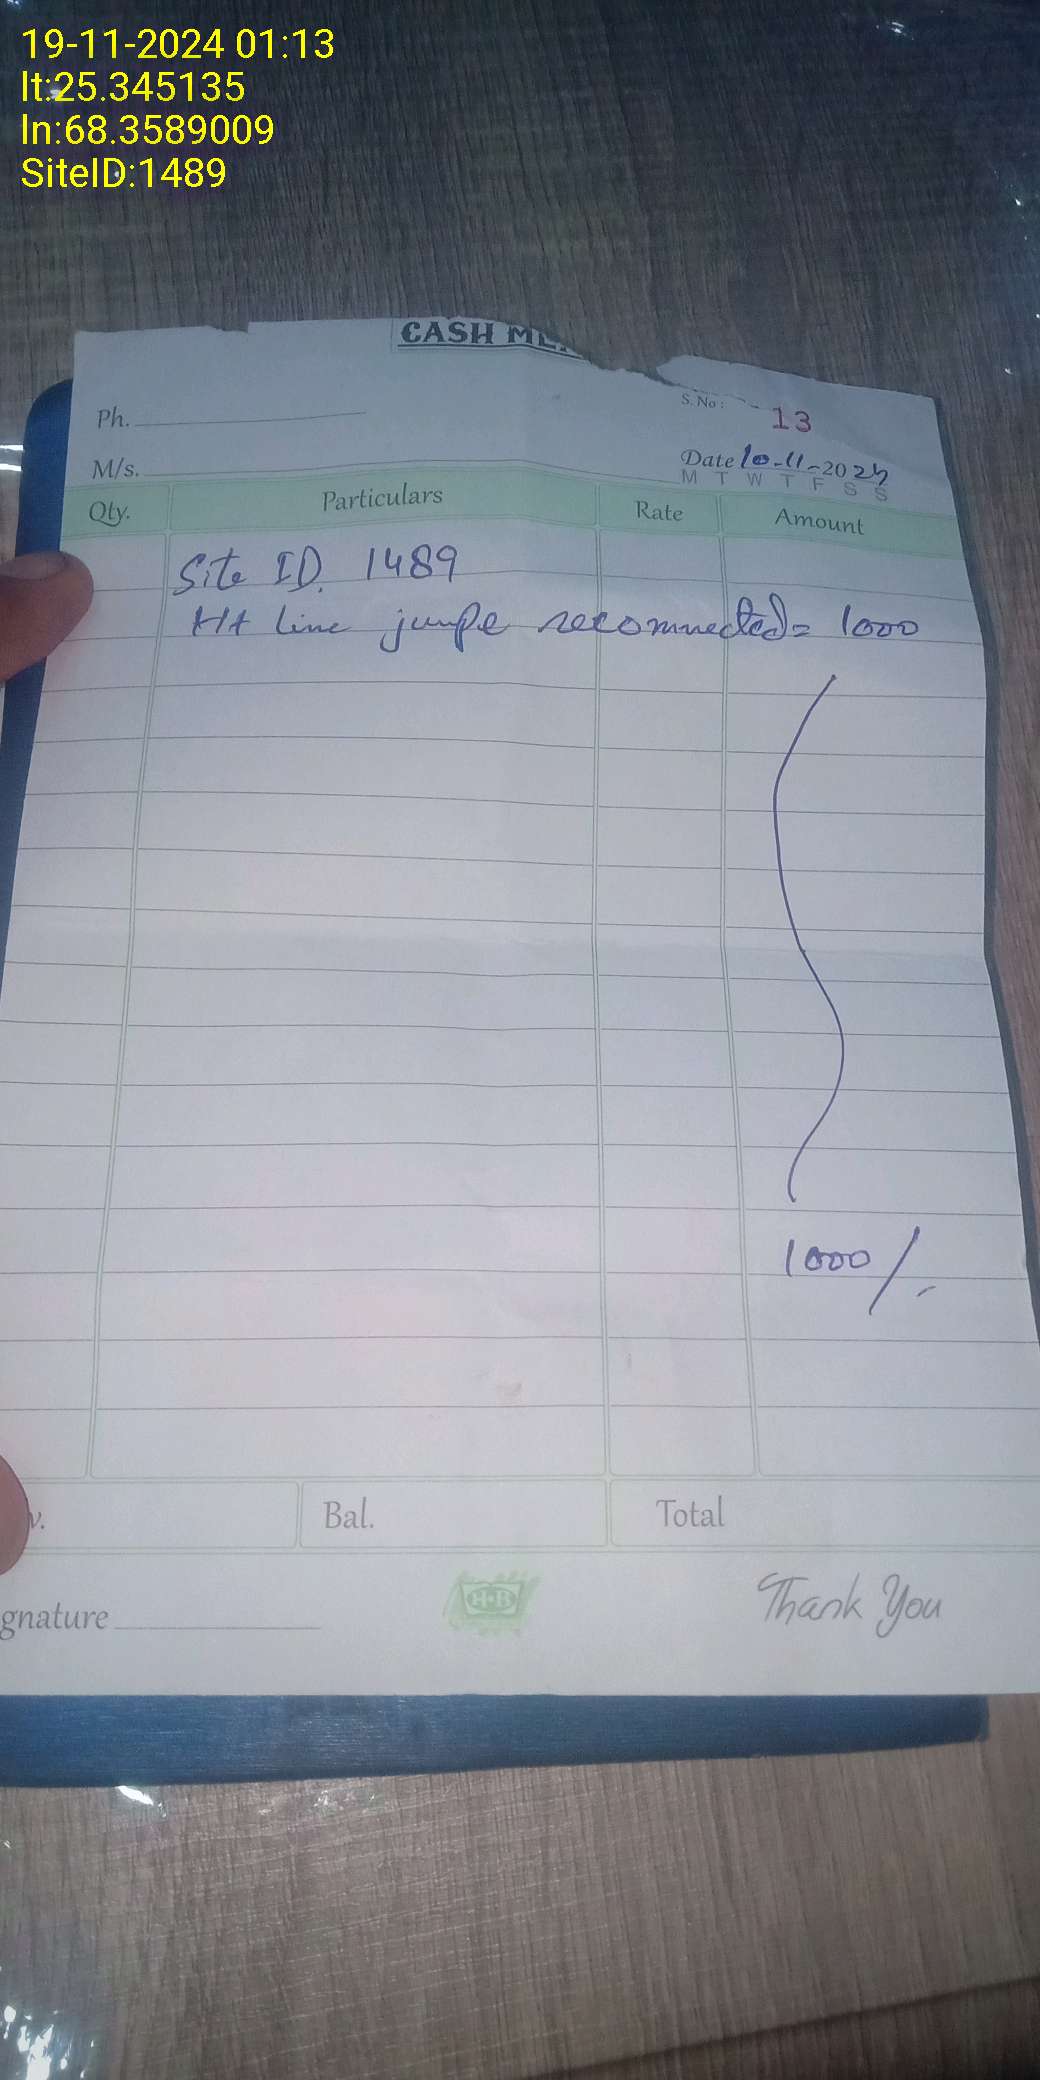 19-11-2024 01:13
lt:25.345135
ln:68.3589009
SiteID:1489
CASH ME
Ph.
S. No: 13
M/s.
Date 10-11-2024
M T W T F S S
Qty. Particulars Rate Amount
Site ID. 1489
Ht Line jumpe reconnected = 1000
1000/-
v. Bal. Total
gnature
H·B
Thank You